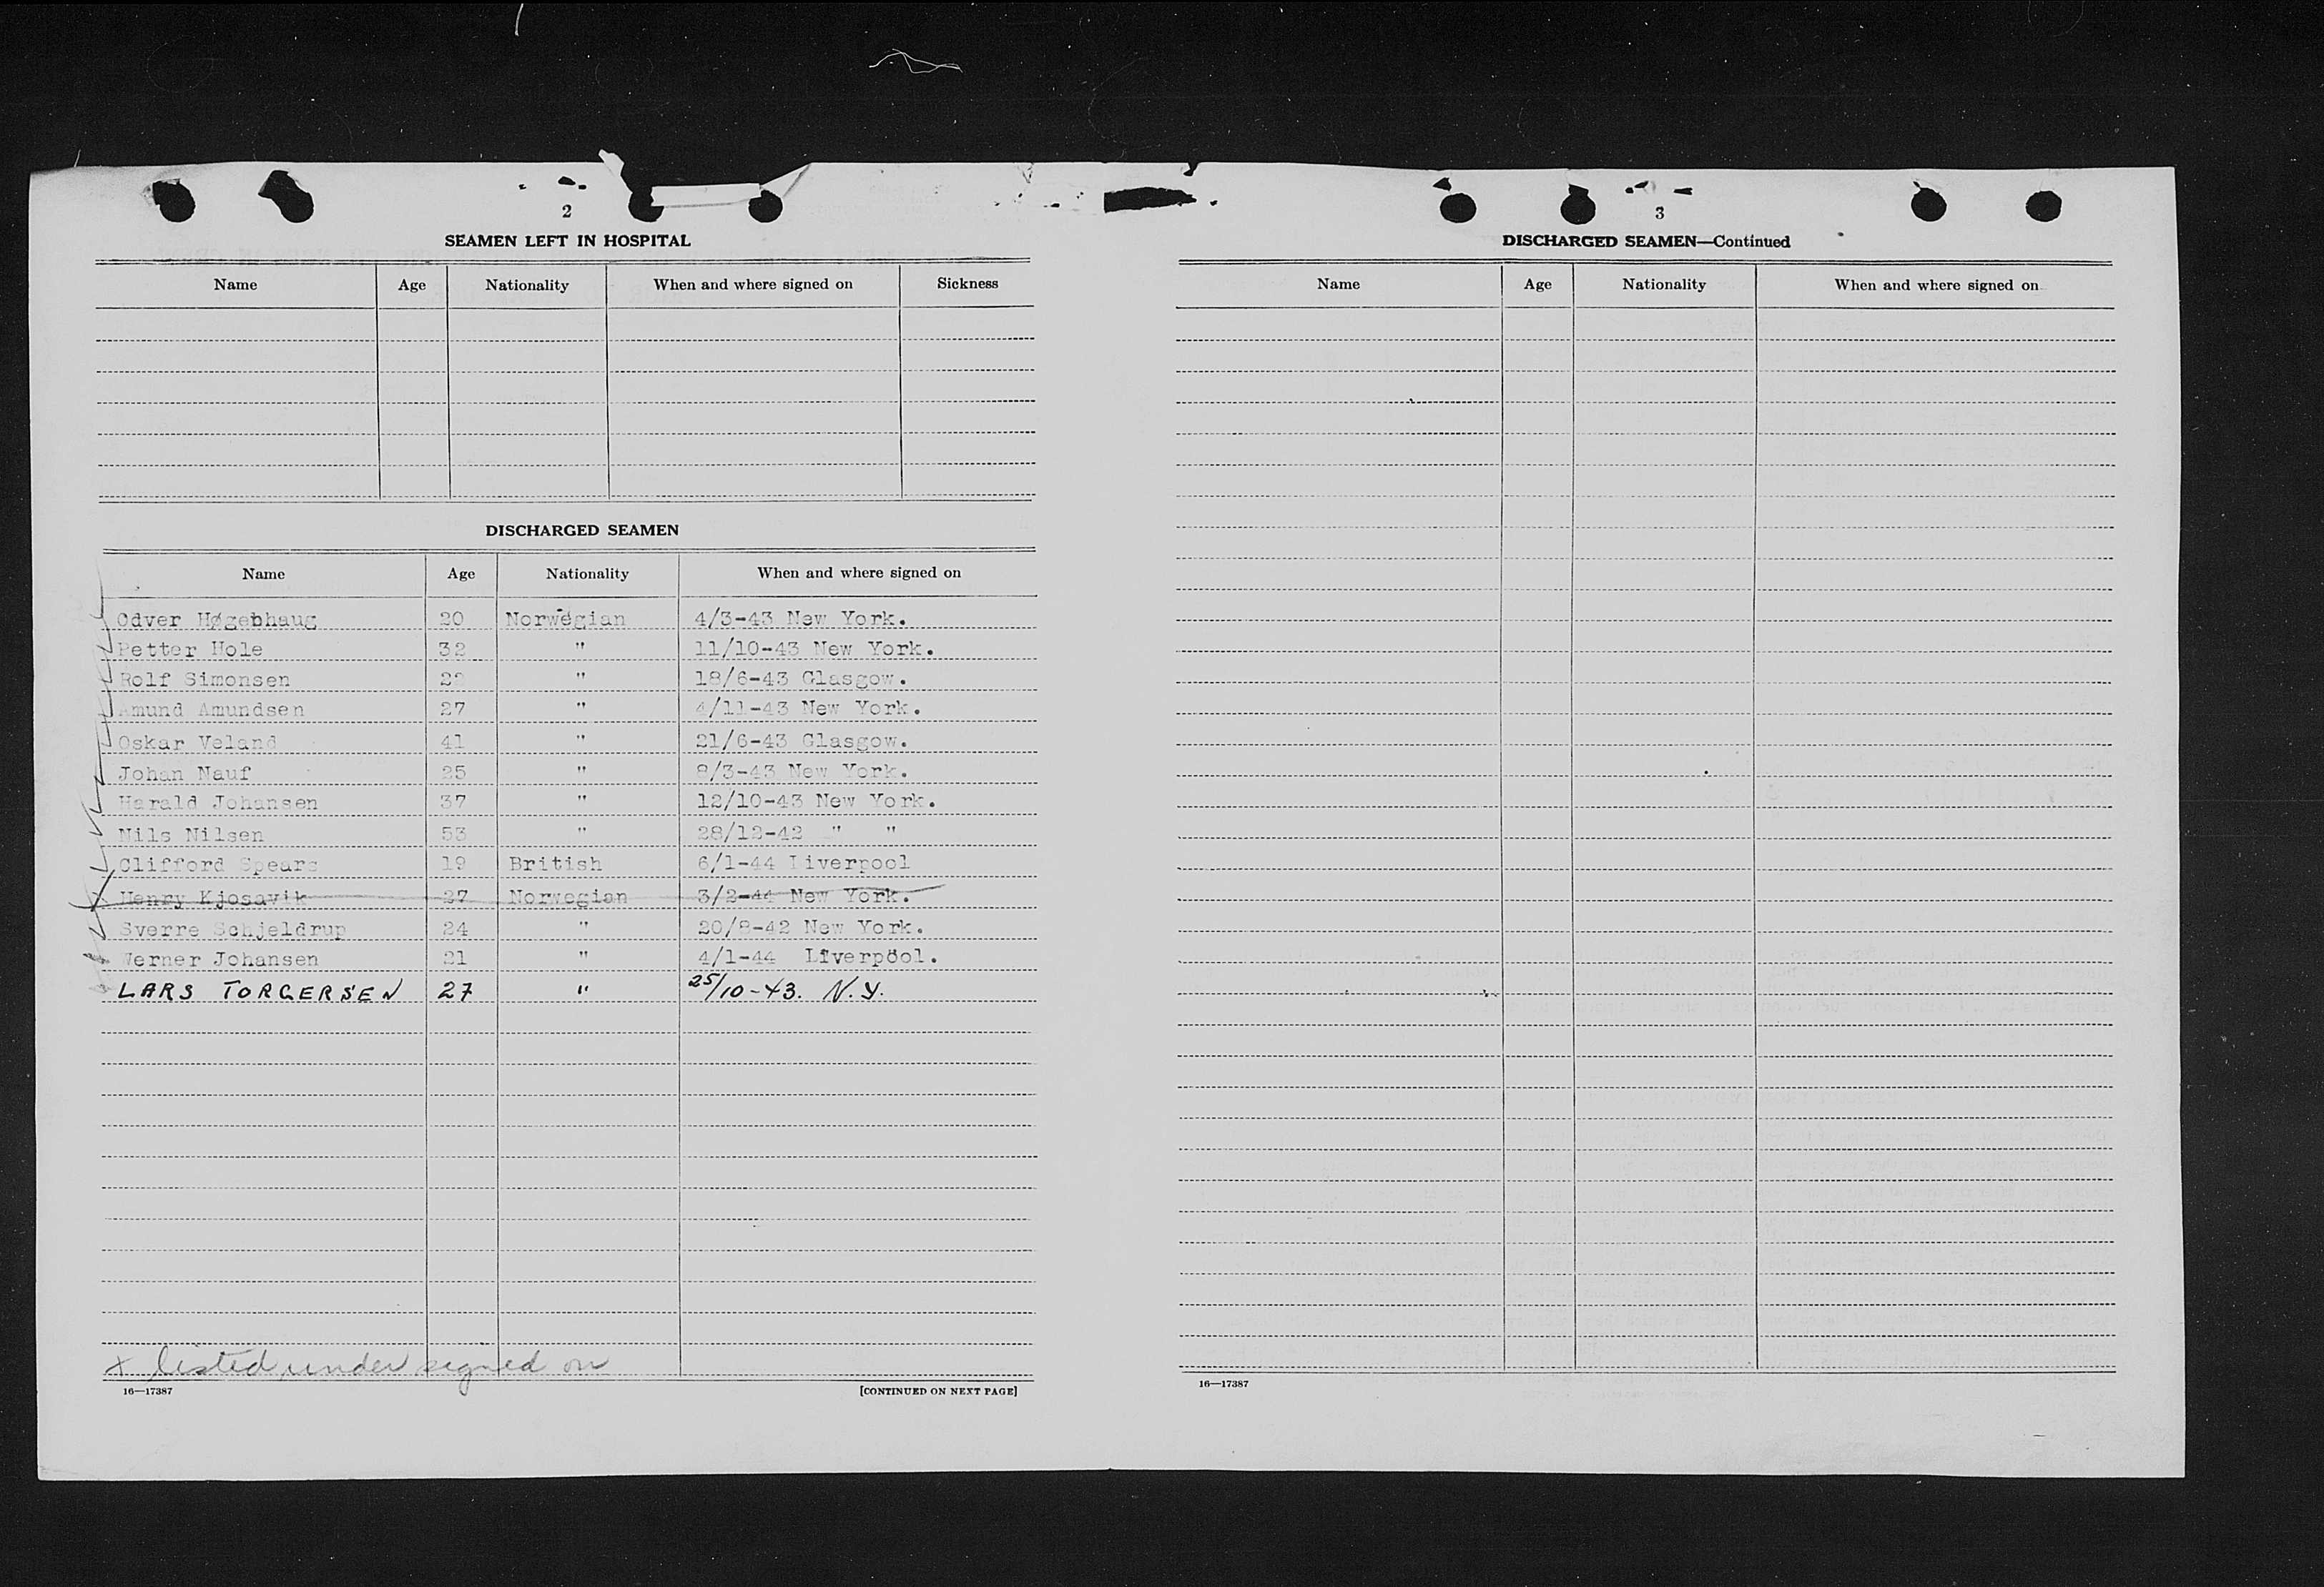 2
SEAMEN LEFT IN HOSPITAL
Name Age Nationality When and where signed on Sickness
DISCHARGED SEAMEN
Name Age Nationality When and where signed on
Odver Høgebhaug 20 Norwegian 4/3-43 New York.
Petter Hole 32 " 11/10-43 New York.
Rolf Simonsen " 18/6-43 Glasgow.
Amund Amundsen 27 " 4/11-43 New York.
Oskar Veland 41 " 21/6-43 Glasgow.
Johan Nauf 25 " 8/3-43 New York.
Harald Johansen 37 " 12/10-43 New York.
Nils Nilsen 53 " 28/12-42 " "
Clifford Spears 19 British 6/1-44 Liverpool
Henry Kjosavik 27 Norwegian 3/2-44 New York.
Sverre Schjeldrup 24 " 20/8-42 New York.
Werner Johansen 21 " 4/1-44 Liverpöol.
LARS TORGERSEN 27 " 25/10-43. N.Y.
x listed under signed on
16—17387 [CONTINUED ON NEXT PAGE]
3
DISCHARGED SEAMEN—Continued
Name Age Nationality When and where signed on
16—17387